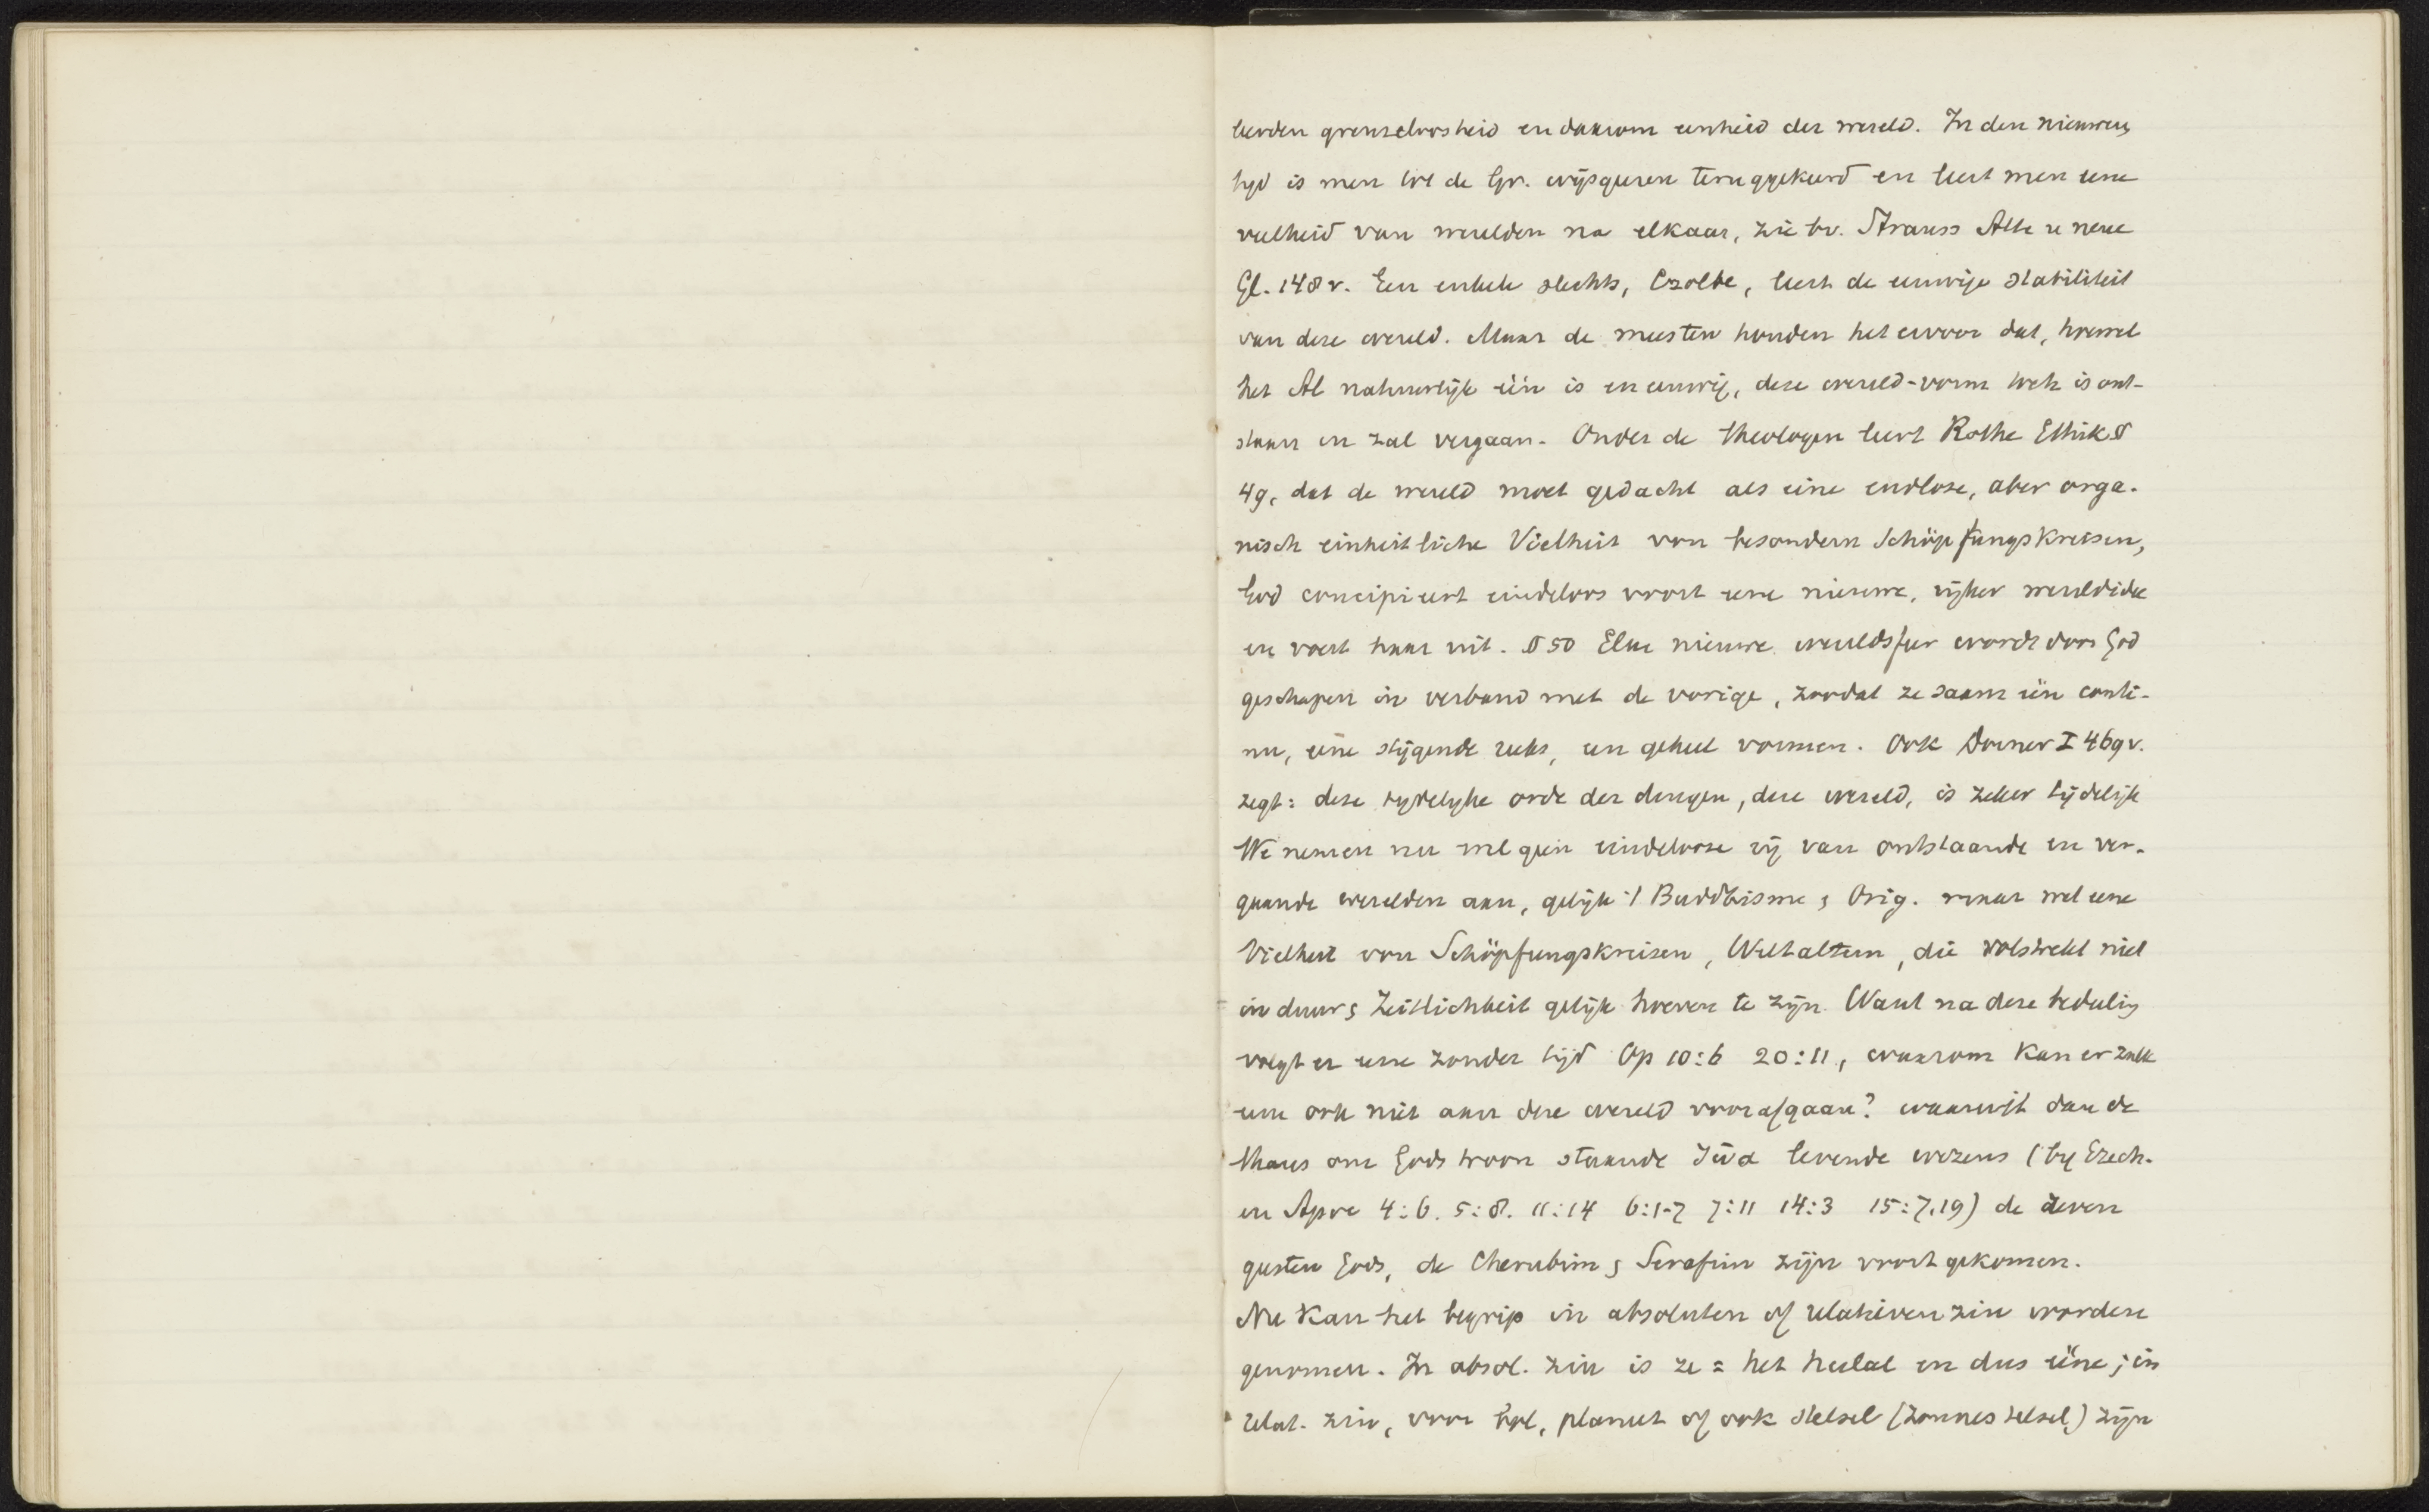 leerden grenzeloosheid en daarom eenheid der wereld. In den nieuwen
tyd is men tot de Gr. wijsgeeren teruggekeerd en leert men eene
veelheid van werelden na elkaar, zie bv. Strauss Alte u neue
Gl. 148 v. Een enkele slechts, Czolbe, leert de eeuwige stabiliteit
van deze wereld. Maar de meesten houden het ervoor dat, hoewel
het Al natuurlijk één is en eeuwig, deze wereld-vorm toch is ont-
staan en zal vergaan. Onder de theologen leert Rothe Ethik §
49, dat de wereld moet gedacht als eine endlose, aber orga-
nisch einheitliche Vielheit von besondern Schöpfungskreisen,
God concipieert eindeloos voort eene nieuwe, rijker wereldidee
en voert haar uit. § 50 Elke nieuwe wereldsfeer wordt door God
geschapen in verband met de vorige, zoodat ze saam één conti-
nu, eene stijgende reeks, een geheel vormen. Ook Dorner I 469 v.
zegt: deze tydelyke orde der dingen, deze wereld, is zeker tijdelijk
We nemen nu wel geen eindelooze rij van ontstaande en ver-
gaande werelden aan, gelijk 't Buddhisme & Orig. maar wel eene
Vielheit von Schöpfungskreisen, Weltaltern, die volstrekt niet
in duur & Zeitlichkeit gelijk hoeven te zijn. Want na deze bedeeling
volgt er eene zonder tijd Op 10:6 20:11, waarom kan er zulk
eene ook niet aan deze wereld voorafgaan? waaruit dan de
thans om Gods troon staande ζῶα levende wezens (by Ezech.
en Apoc 4:6. 5:8. 11:14 6:1-7 7:11 14:3 15:7.19) de zeven
geesten Gods, de Cherubim & Serafim zijn voortgekomen.
Nu kan het begrip in absoluten of relatieven zin worden
genomen. In absol. zin is ze = het heelal en dus ééne; in
relat. zin, voor planeet of ook stelsel (zonnestelsel) zijn